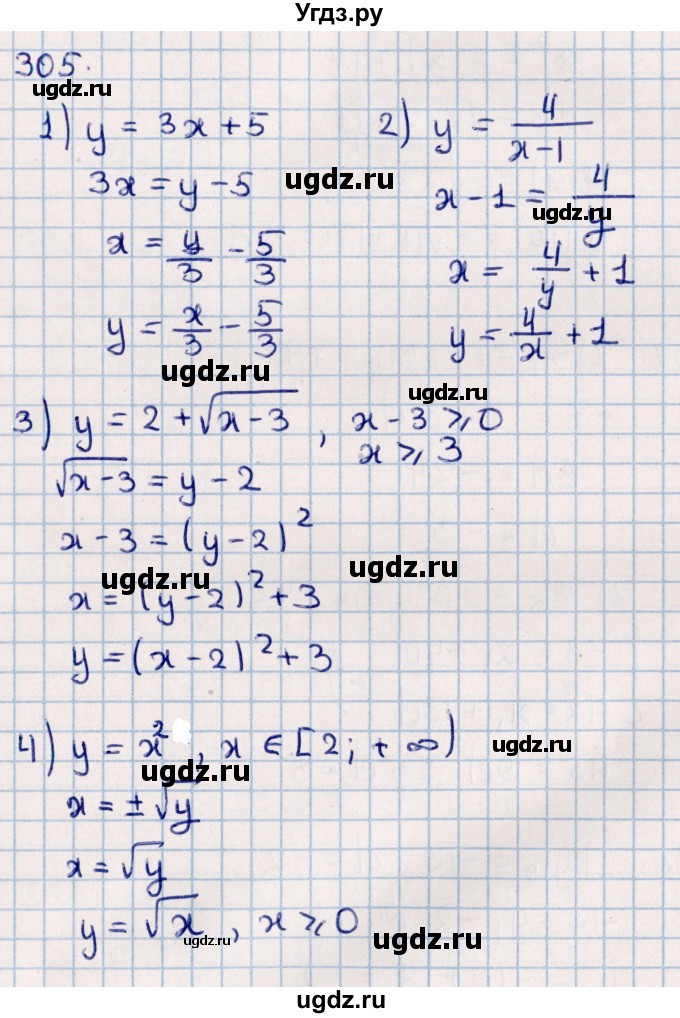 Угдз.ру
305.
ugdz.ru
1) y = 3x + 5
3x = y - 5
ugdz.ru
x = y/3 - 5/3
y = x/3 - 5/3
ugdz.ru
2) y = 4/(x-1)
x - 1 = 4/y
ugdz.ru
x = 4/y + 1
y = 4/x + 1
ugdz.ru
3) y = 2 + √(x-3), x - 3 ⩾ 0
x ⩾ 3
√(x-3) = y - 2
x - 3 = (y-2)²
ugdz.ru ugdz.ru
x = (y-2)² + 3
y = (x-2)² + 3
4) y = x², x ∈ [2; + ∞)
ugdz.ru ugdz.ru
x = ± √y
x = √y
y = √x, x ⩾ 0
ugdz.ru ugdz.ru
ugdz.ru